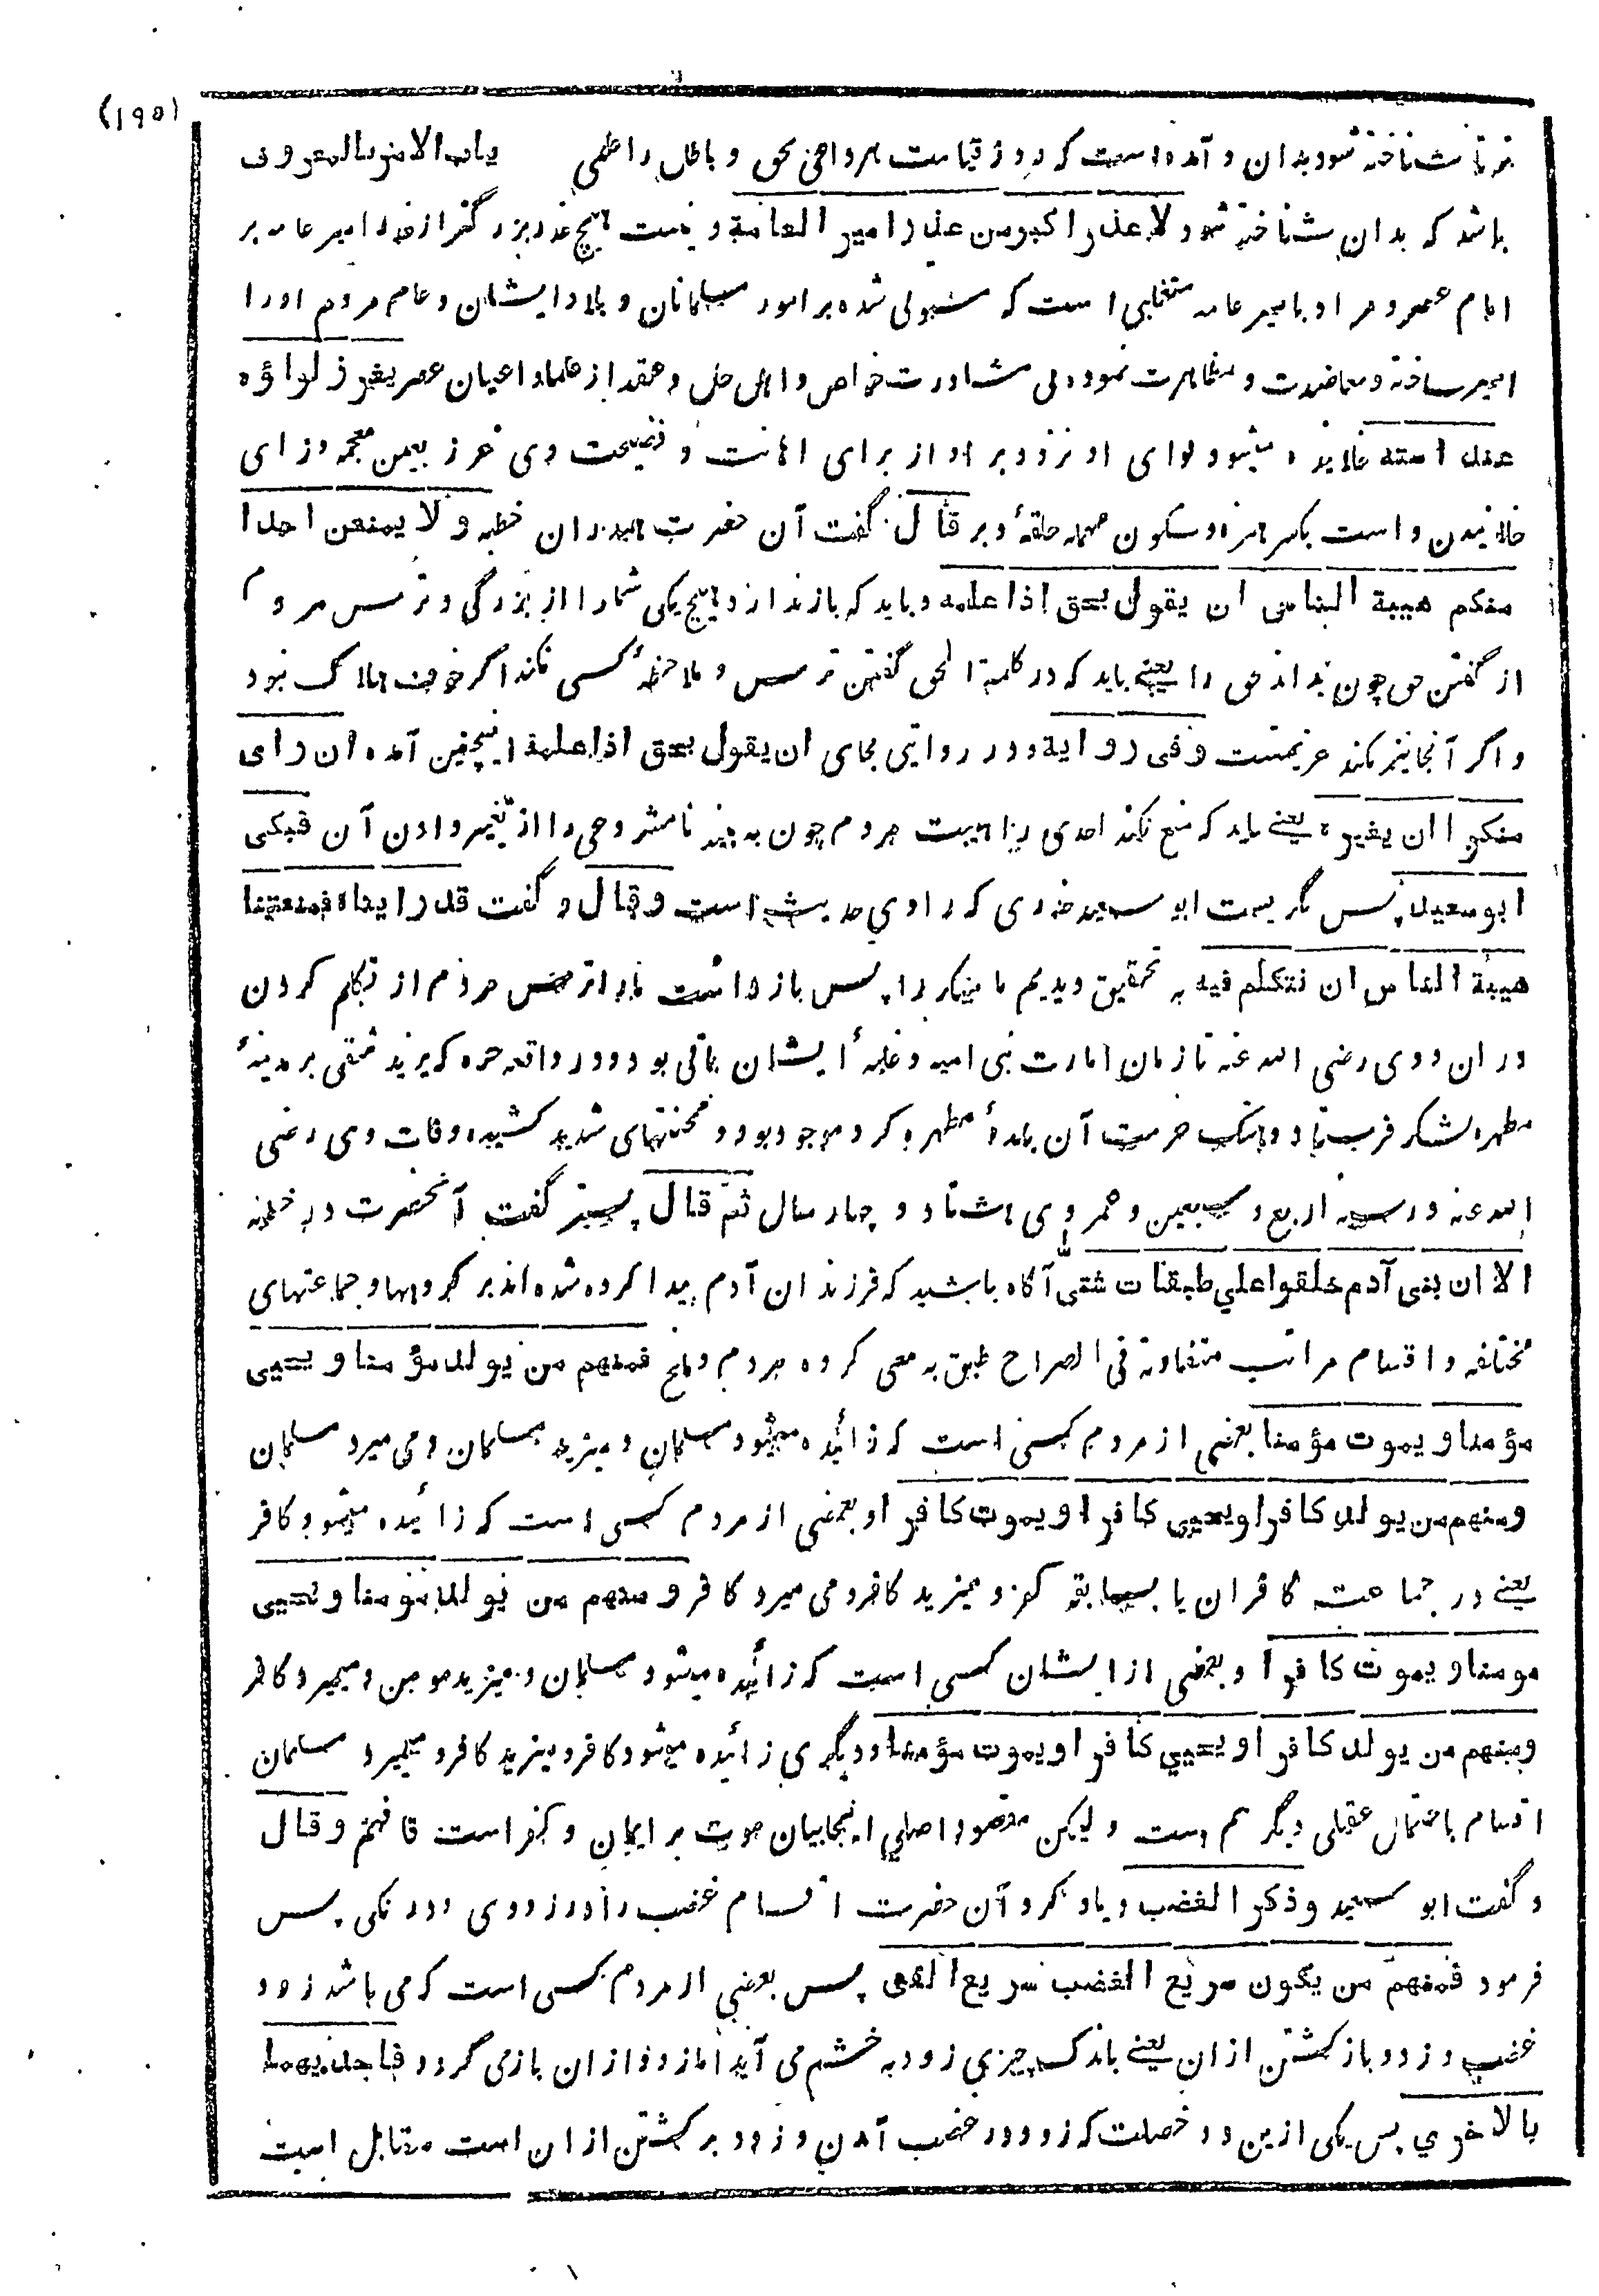 (١٩٥)
باب الامر بالمعروف
تر تا شناخته شود بدان و آمده است که روز قیامت هر داعی بحق و باطل را علمی
باشد که بدان شناخته شود لا غدر اکبر من غدر امیر العامة و نیست هیچ غدر بزرگتر از غدر امیر عامه بر
امام عصر و مراد بامیر عامه متغلبی است که مستولی شده بر امور مسلمانان و بلاد ایشان و عامه مردم او را
امیر ساخته و معاضدت و مظاهرت نموده بی مشاورت خواص و اهل حل و عقد از علما و اعیان عصر یغرز لواؤه
عند استه خلانیده میشود لوای او نزد دبر او از برای اهانت و فضیحت وی غرز بغین معجمه و زای
خلانیدن و است بکسر همزه و سکون مهمله حلقهٔ دبر قال گفت آن حضرت هم دران خطبه ولا یمنعن احدا
منکم هیبة الناس ان یقول بحق اذا علمه و باید که باز ندارد هیچ یکی شما را از بزرگی و ترس مردم
از گفتن حق چون بداند حق را یعنے باید که در کلمة الحق گفتن ترس و ملاحظهٔ کسی نکند اگر خوف هلاک نبود
و اگر آنجا نیز نکند عزیمتست و فی روایة و در روایتی بجای ان یقول بحق اذا علمه اینچنین آمده ان رای
منکرا ان یغیره یعنے باید که منع نکند احدی را هیبت مردم چون به بیند نامشروعی را از تغییر دادن آن فبکی
ابو سعید پس گریست ابو سعید خدری که راوی حدیث است و قال و گفت قد رایناه فمنعتنا
هیبة الناس ان نتکلم فیه به تحقیق دیدیم ما منکر را پس باز داشت ما را ترس مردم از تکلم کردن
در ان و وی رضی الله عنه تا زمان امارت بنی امیه و غلبهٔ ایشان باقی بود و در واقعه حره که یزید شقی بر مدینهٔ
مطهره لشکر فرستاد و هتک حرمت آن بلدهٔ مطهره کرد موجود بود و محنتهای شدید کشیده وفات وی رضی
الله عنه در سنه اربع و سبعین و عمر وی هشتاد و چهار سال ثم قال پستر گفت آنحضرت در خطبه
الا ان بنی آدم خلقوا علی طبقات شتی آگاه باشید که فرزندان آدم پیدا کرده شده اند بر گروهها و جماعتهای
مختلفه و اقسام مراتب متفاوته فی الصراح طبق به معنی گروه مردم و ملخ فمنهم من یولد مؤمنا و یحیی
مؤمنا و یموت مؤمنا بعضی از مردم کسی است که زائیده میشود مسلمان و میزید مسلمان و می میرد مسلمان
ومنهم من یولد کافرا و یحیی کافرا و یموت کافرا و بعضی از مردم کسی است که زائیده میشود کافر
یعنے در جماعت کافران یا بسابقه کفر و میزید کافر و می میرد کافر و منهم من یولد مؤمنا و یحیی
مومنا و یموت کافرا و بعضی از ایشان کسی است که زائیده میشود مسلمان و میزید مومن و میمیرد کافر
ومنهم من یولد کافرا و یحیی کافرا و یموت مؤمنا و دیگری زائیده میشود کافر و میزید کافر و میمیرد مسلمان
اقسام باحتمال عقلی دیگر هم است و لیکن مقصود اصلی اینجا بیان موت بر ایمان و کفر است فافهم و قال
و گفت ابو سعید و ذکر الغضب و یاد کرد آن حضرت اقسام غضب را در زودی و درنگی پس
فرمود فمنهم من یکون سریع الغضب سریع الفئ پس بعضی از مردم کسی است که می باشد زود
غضب و زود باز گشتن از ان یعنے باندک چیزی زود به خشم می آید اما زود از ان باز می گردد فاحدیهما
بالاخری پس یکی ازین دو خصلت که زود در غضب آمدن و زود برگشتن از ان است مقابل است